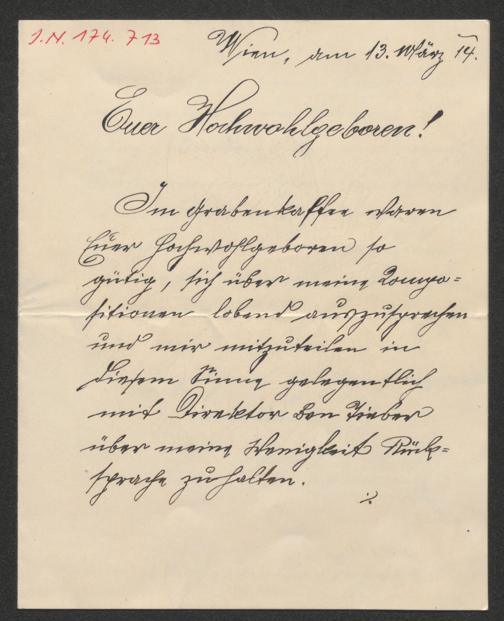 J.N. 174.713
Wien, am 13. März 14.
Euer Hochwohlgeboren!
Im Grabenkaffee waren
Euer Hochwohlgeboren so
gütig, sich über meine Kompo=
sitionen lobend auszusprechen
und mir mitzuteilen in
diesem Sinne gelegentlich
mit Direktor Ben Tieber
über meine Wenigkeit Rück=
sprache zu halten.